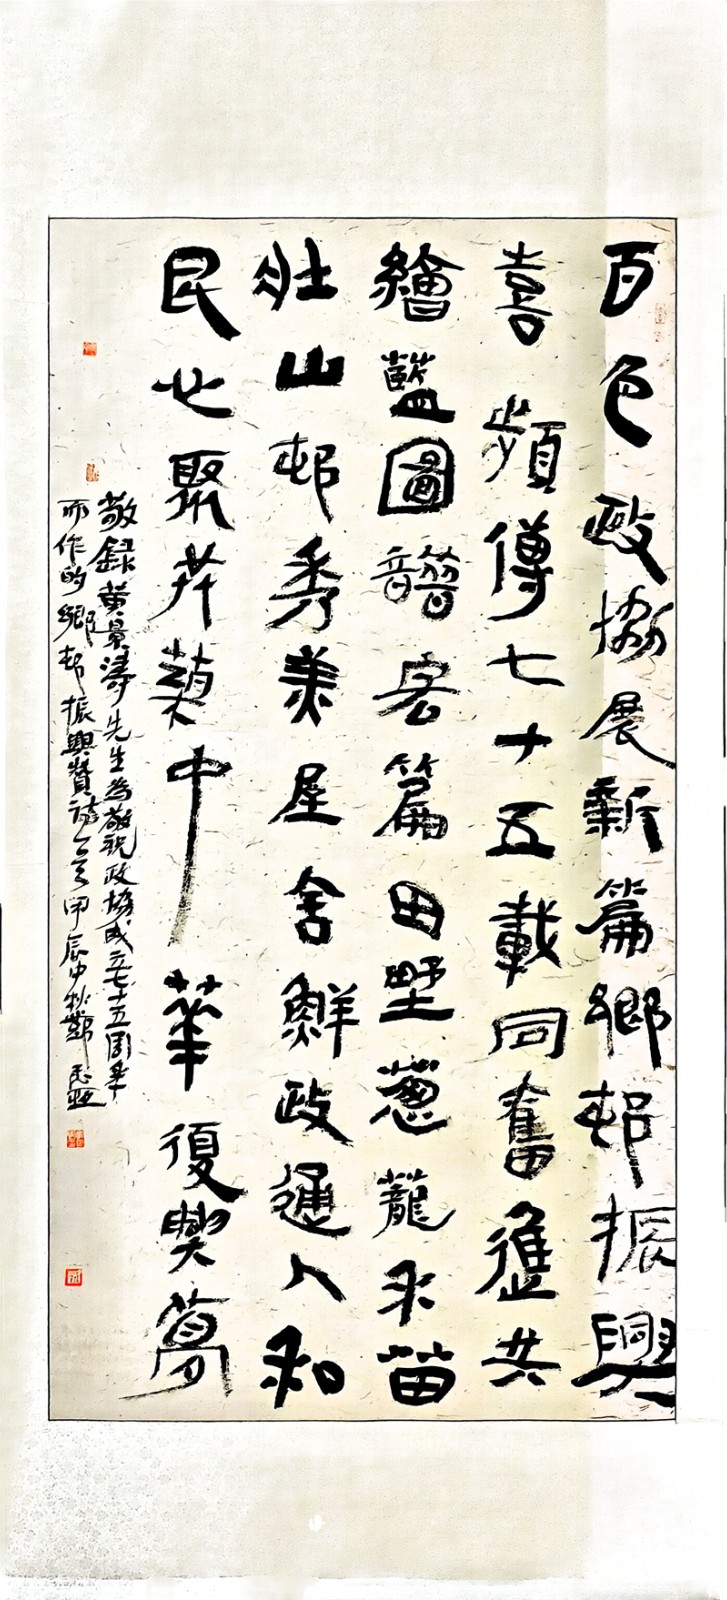 百色政協展新篇鄉邨振興
喜頻傳七十五載同奮進共
繪藍圖譜宏篇田野葱蘢禾苗
壯山邨秀美屋舍鮮政通人和
民心聚共築中華復興夢
敬録黄景濤先生為敬祝政協成立七十五周年
而作的鄉邨振興贊詩一首甲辰中秋鄭